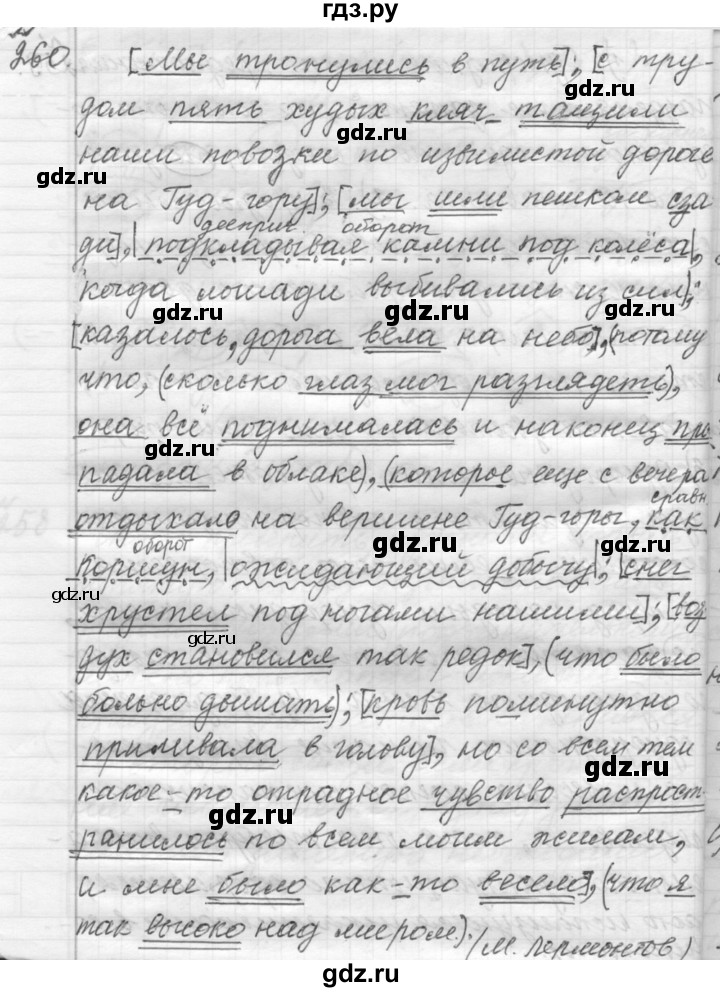 гдз.ру
260. [Мы тронулись в путь]; [с тру-
gdz.ru
дом пять худых кляч тащили
gdz.ru
наши повозки по извилистой дороге
на Гуд-гору]; [мы шли пешком сза
gdz.ru
дееприч. оборот
ди], |подкладывая камни под колёса|,
когда лошади выбивались из сил);
gdz.ru gdz.ru
[казалось, дорога вела на небо], (потому
что, (сколько глаз мог разглядеть),
она всё поднималась и наконец про
gdz.ru
падала в облаке), (которое еще с вечера
сравн
отдыхало на вершине Гуд-горы, как
оборот gdz.ru
коршун, |ожидающий добычу|; [снег
gdz.ru
хрустел под ногами нашими]; [воз
gdz.ru
дух становился так редок], (что было
больно дышать); [кровь поминутно
приливала в голову], но со всем тем
gdz.ru
какое-то отрадное чувство распрост-
gdz.ru
ранилось по всем моим жилам,
и мне было как-то весело], (что я
gdz.ru
так высоко над миром). /М. Лермонтов)
gdz.ru